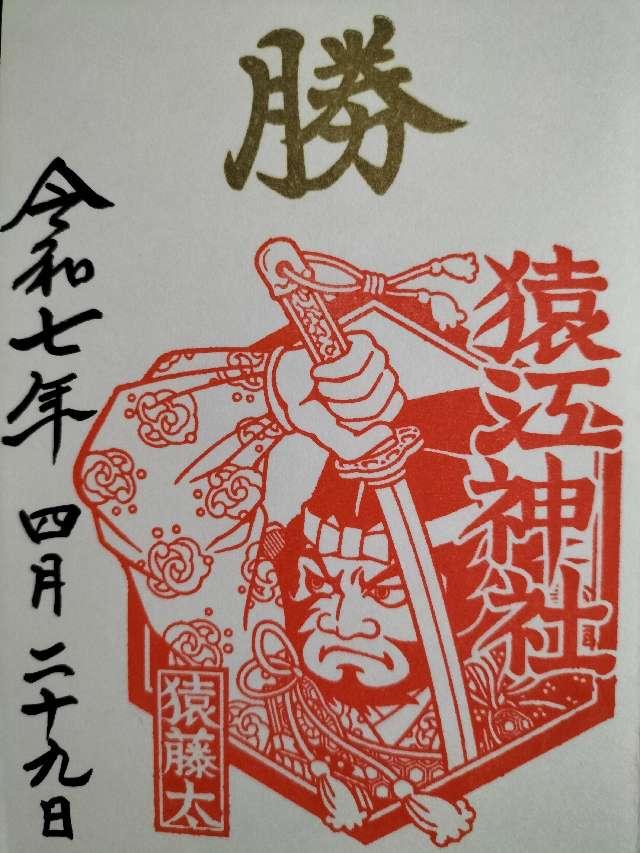 勝
猿江神社
猿藤太
令和七年 四月 二十九日